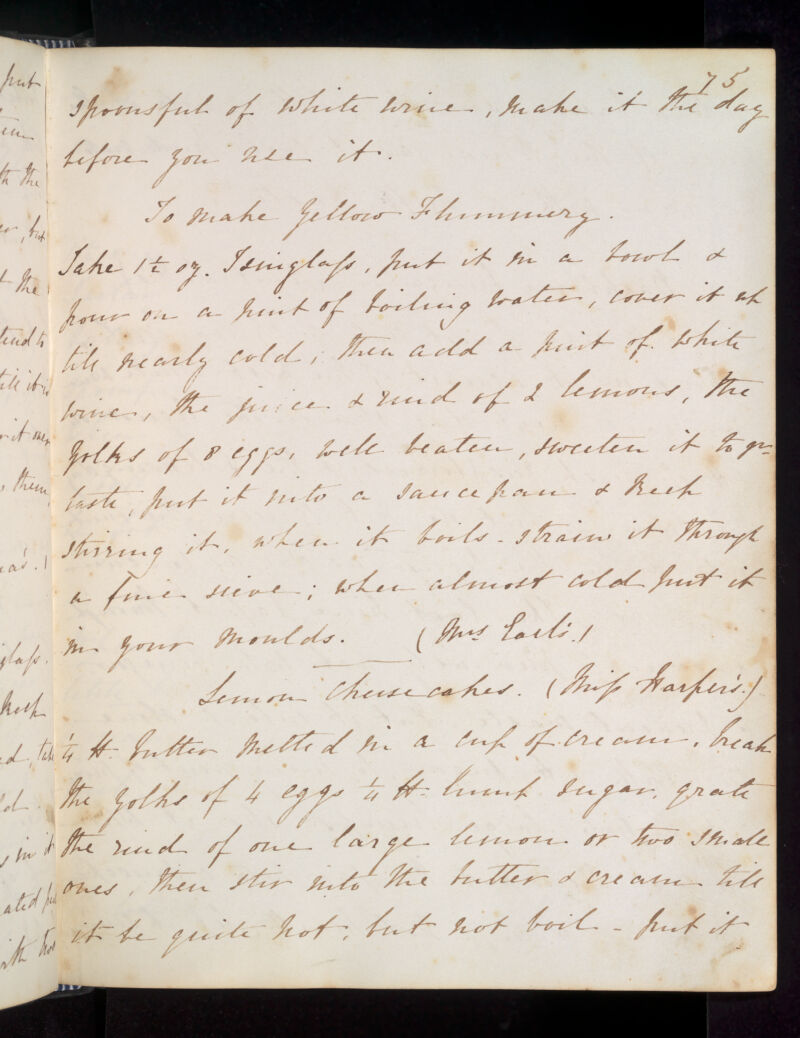 75
spoonsful of white wine, make it the day
before you use it.
To make Yellow Flummery.
Take 1½ oz. Isinglass, put it in a bowl &
pour on a pint of boiling water, cover it up
till nearly cold; then add a pint of white
wine, the juice & rind of 2 lemons, the
yolks of 8 eggs, well beaten, sweeten it to yr
taste, put it into a saucepan & keep
stirring it, when it boils - strain it through
a fine sieve; when almost cold put it
in your moulds. (Mrs Earl's.)
Lemon Cheesecakes. (Miss Harper's.)
¼ lb butter melted in a cup of cream, break
the yolks of 4 eggs ¼ lb lump sugar, grate
the rind of one large lemon or two small
ones, then stir into the butter & cream till
it be quite hot, but not boil - put it